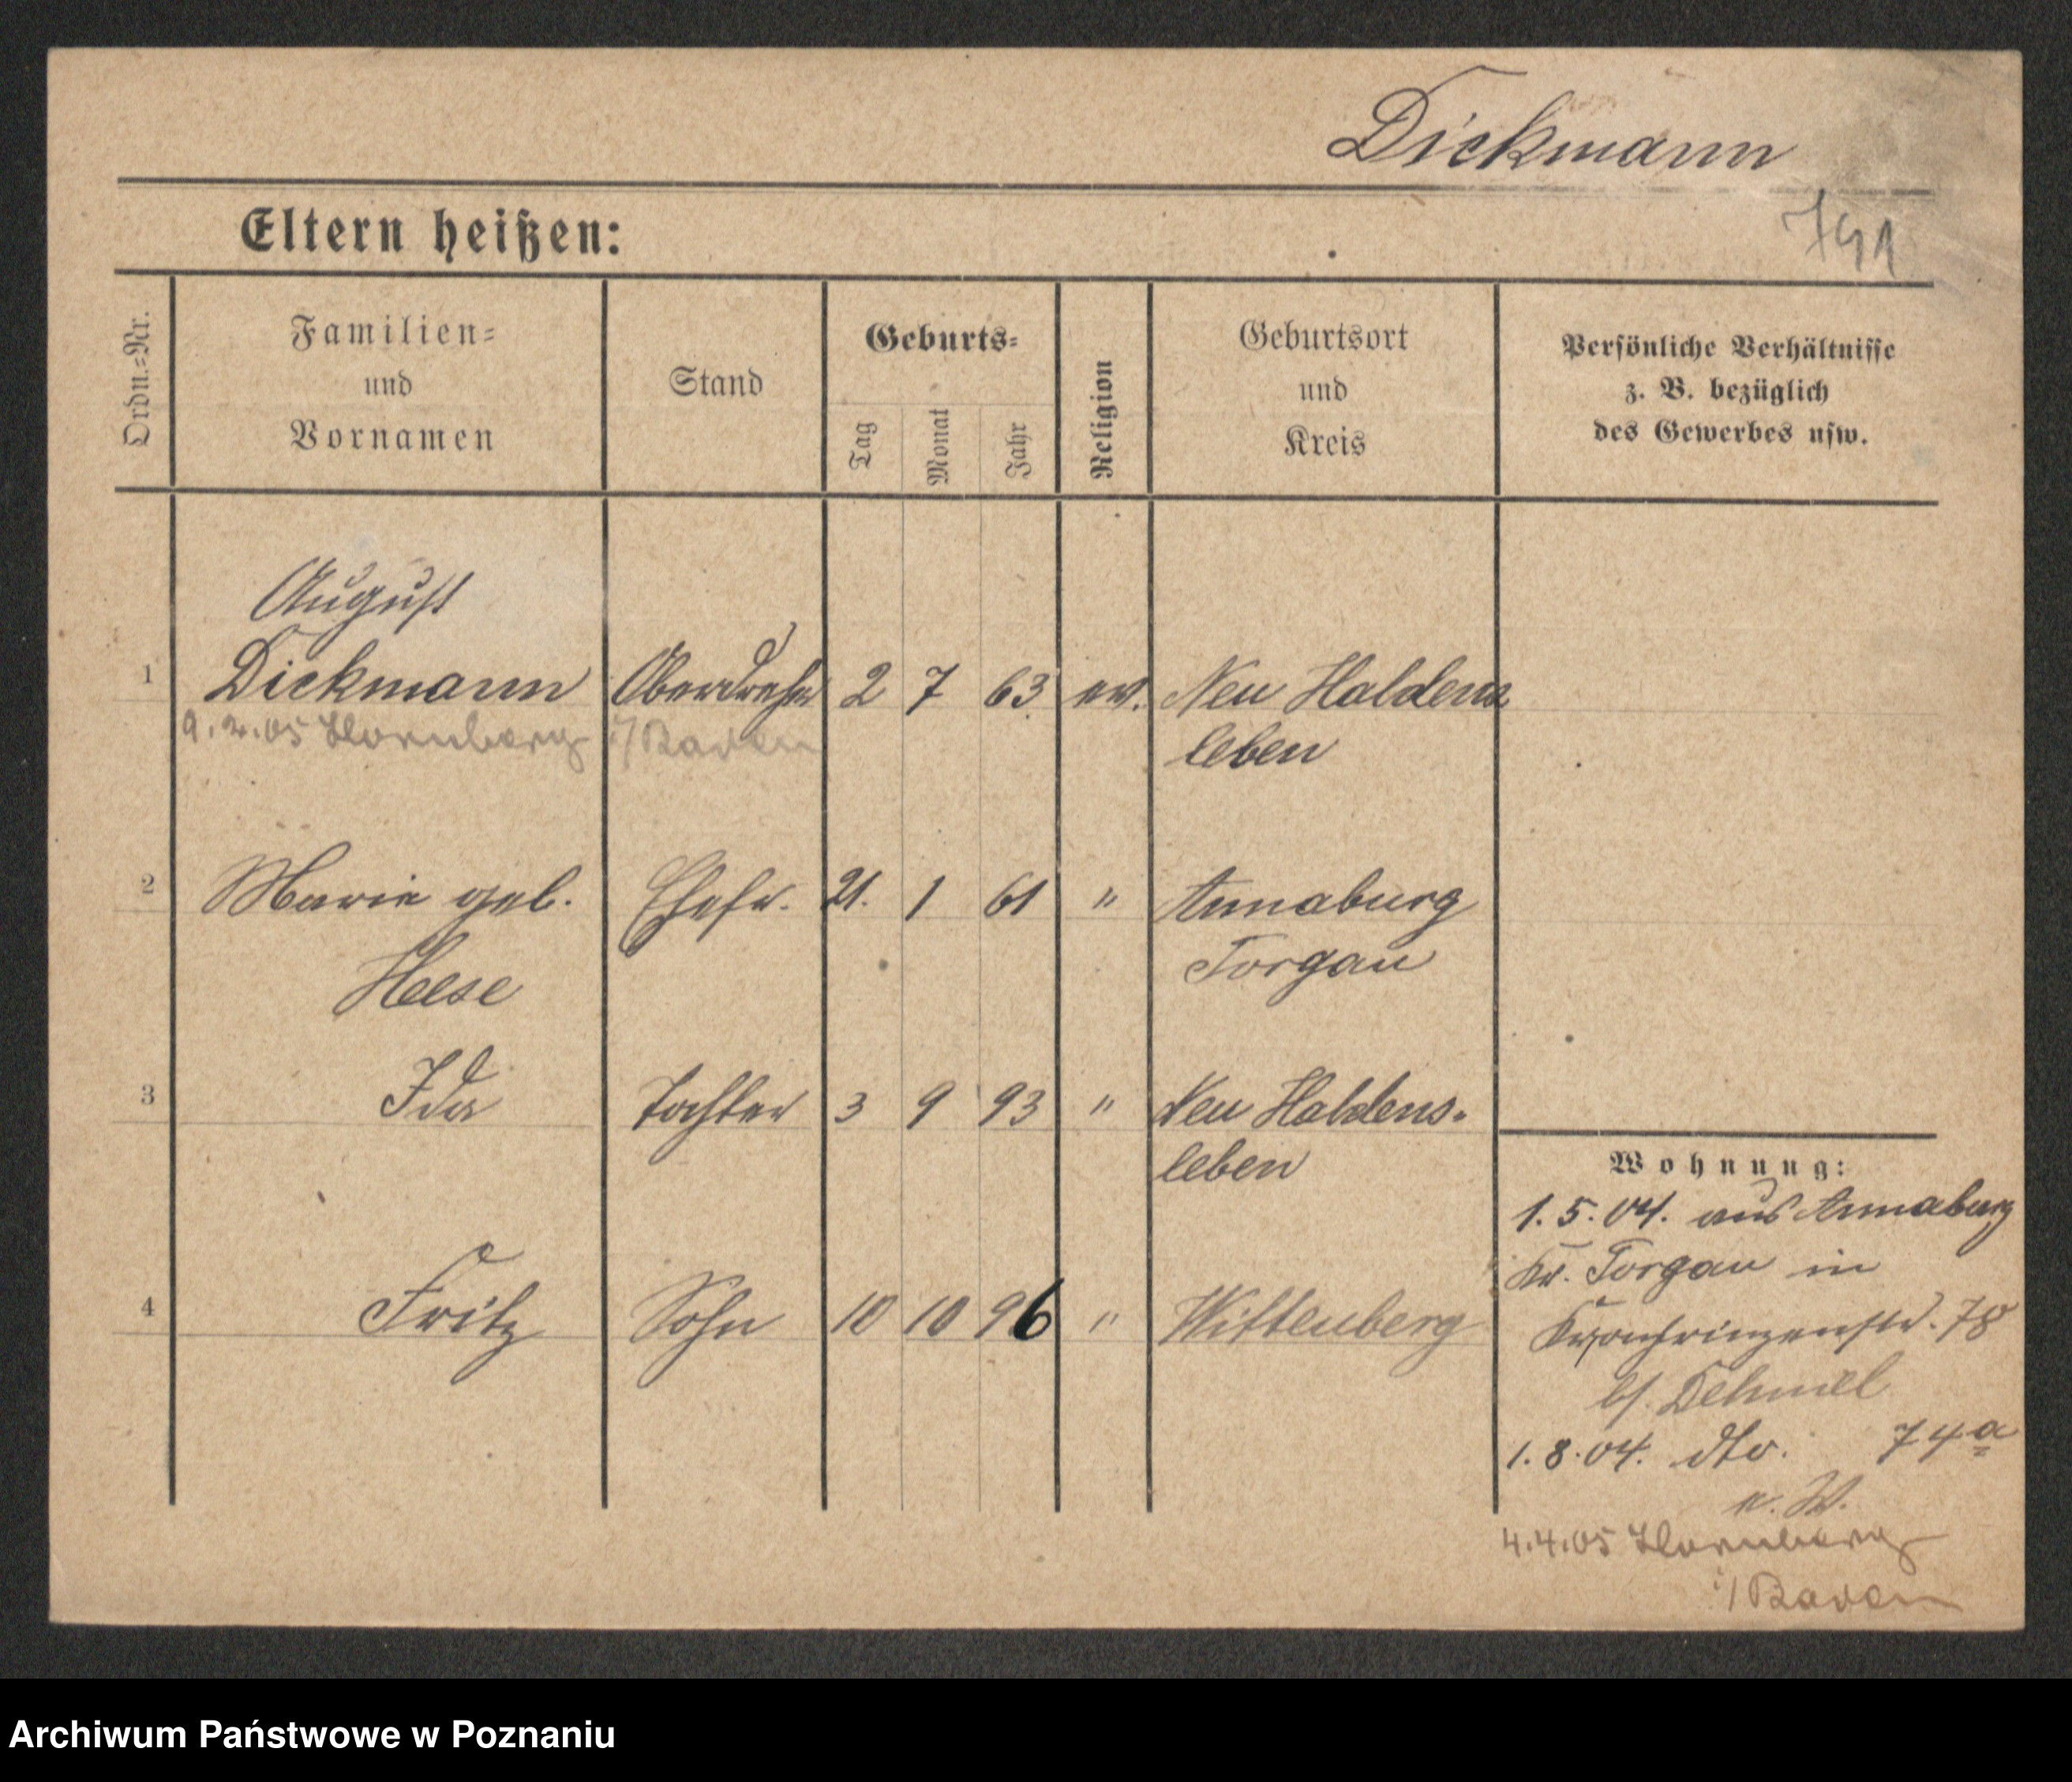 Dickmann
Eltern heißen:
791
Ordn.=Nr.
Familien=
und
Vornamen
Stand
Geburts=
Tag
Monat
Jahr
Religion
Geburtsort
und
Kreis
Persönliche Verhältnisse
z. B. bezüglich
des Gewerbes usw.
August
1 Dickmann Oberdreher 2 7 63 ev. Neu Haldens
leben
9.2.05 Hornberg i/Baden
2 Marie geb. Ehefr. 21. 1 61 " Annaburg
Heese Torgau
3 Ida Tochter 3 9 93 " Neu Haldens-
leben
4 Fritz Sohn 10 10 96 " Wittenberg
Wohnung:
1.5.04. aus Annaburg
Kr. Torgau in
Kronprinzenstr. 78
b/. Dehmel
1.8.04. dto. 74a
v. W.
4.4.05 Hornberg
i/Baden
Archiwum Państwowe w Poznaniu